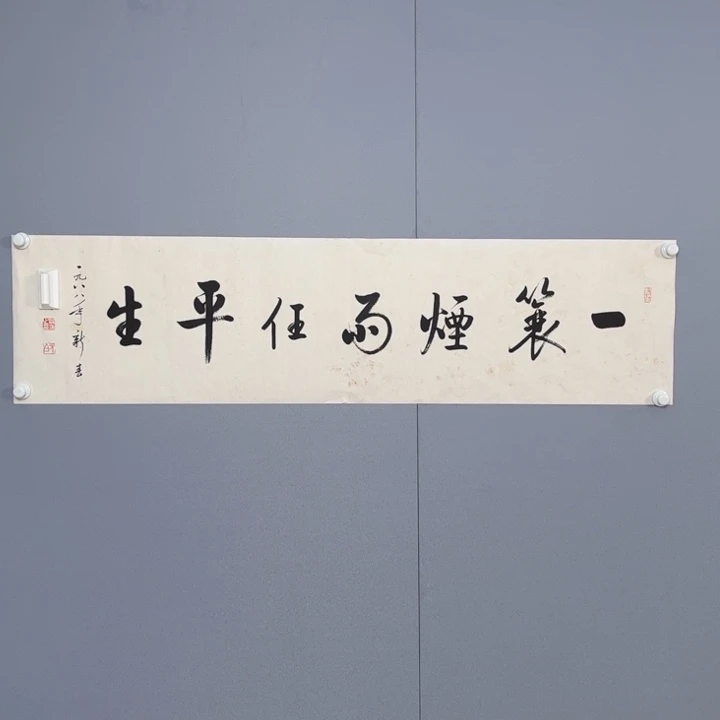 一蓑煙雨任平生
一九八八年新春